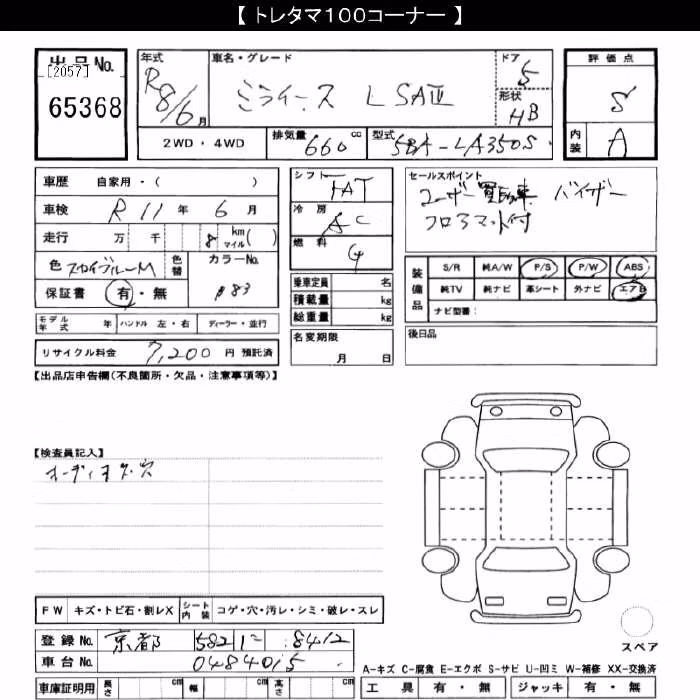 【 トレタマ100コーナー 】
出品No.
[2057]
65368
年式 R8/6月
車名・グレード
ミライース L SAⅢ
ドア 5
形状 HB
評価点 S
内装 A
2WD・4WD
排気量 660 cc
型式 5BA-LA350S
車歴 自家用・( )
車検 R11年 6月
走行 万 千 8 km マイル( )
色 スカイブルーM 色替 カラーNo. B83
保証書 有・無
モデル年式 年 ハンドル 左・右 ディーラー・並行
リサイクル料金 7,200 円 預託済
シフト IAT
冷房 AC
燃料 G
乗車定員 名
積載量 kg
総重量 kg
名変期限
月 日
セールスポイント
ユーザー買取車 バイザー
フロアマット付
装備品
S/R 純A/W P/S P/W ABS
純TV 純ナビ 革シート 外ナビ エアB
ナビ型番:
後日品
【出品店申告欄(不良箇所・欠品・注意事項等)】
【検査員記入】
オーディオレス・穴
FW キズ・トビ石・割レX シート内装 コゲ・穴・汚レ・シミ・破レ・スレ
登録No. 京都 582 い 8412
車台No. 0484015
スペア
A-キズ C-腐食 E-エクボ S-サビ U-凹ミ W-補修 XX-交換済
車庫証明用 長さ cm 幅 cm 高さ cm
工具 有・無 ジャッキ 有・無